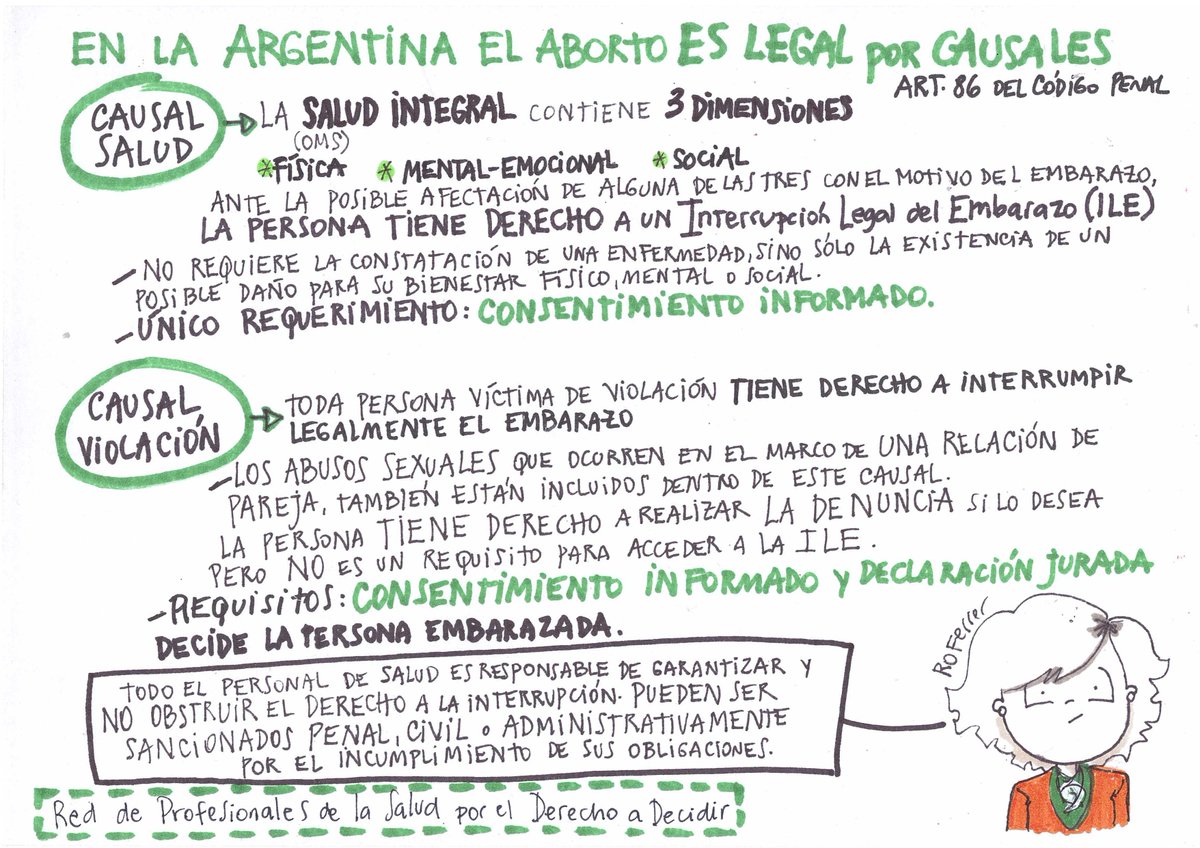 EN LA ARGENTINA EL ABORTO ES LEGAL POR CAUSALES
ART. 86 DEL CÓDIGO PENAL
CAUSAL
SALUD
LA SALUD INTEGRAL CONTIENE 3 DIMENSIONES
(OMS)
*FÍSICA * MENTAL-EMOCIONAL * SOCIAL
ANTE LA POSIBLE AFECTACIÓN DE ALGUNA DE LAS TRES CON EL MOTIVO DEL EMBARAZO,
LA PERSONA TIENE DERECHO A UN Interrupción Legal del Embarazo (ILE)
- NO REQUIERE LA CONSTATACIÓN DE UNA ENFERMEDAD, SINO SÓLO LA EXISTENCIA DE UN
POSIBLE DAÑO PARA SU BIENESTAR FÍSICO, MENTAL O SOCIAL.
- ÚNICO REQUERIMIENTO: CONSENTIMIENTO INFORMADO.
CAUSAL
VIOLACIÓN
TODA PERSONA VÍCTIMA DE VIOLACIÓN TIENE DERECHO A INTERRUMPIR
LEGALMENTE EL EMBARAZO
- LOS ABUSOS SEXUALES QUE OCURREN EN EL MARCO DE UNA RELACIÓN DE
PAREJA, TAMBIÉN ESTÁN INCLUIDOS DENTRO DE ESTE CAUSAL.
LA PERSONA TIENE DERECHO A REALIZAR LA DENUNCIA SI LO DESEA
PERO NO ES UN REQUISITO PARA ACCEDER A LA ILE.
- REQUISITOS: CONSENTIMIENTO INFORMADO Y DECLARACIÓN JURADA
DECIDE LA PERSONA EMBARAZADA.
RoFerrer
TODO EL PERSONAL DE SALUD ES RESPONSABLE DE GARANTIZAR Y
NO OBSTRUIR EL DERECHO A LA INTERRUPCIÓN. PUEDEN SER
SANCIONADOS PENAL, CIVIL O ADMINISTRATIVAMENTE
POR EL INCUMPLIMIENTO DE SUS OBLIGACIONES.
Red de Profesionales de la Salud por el Derecho a Decidir